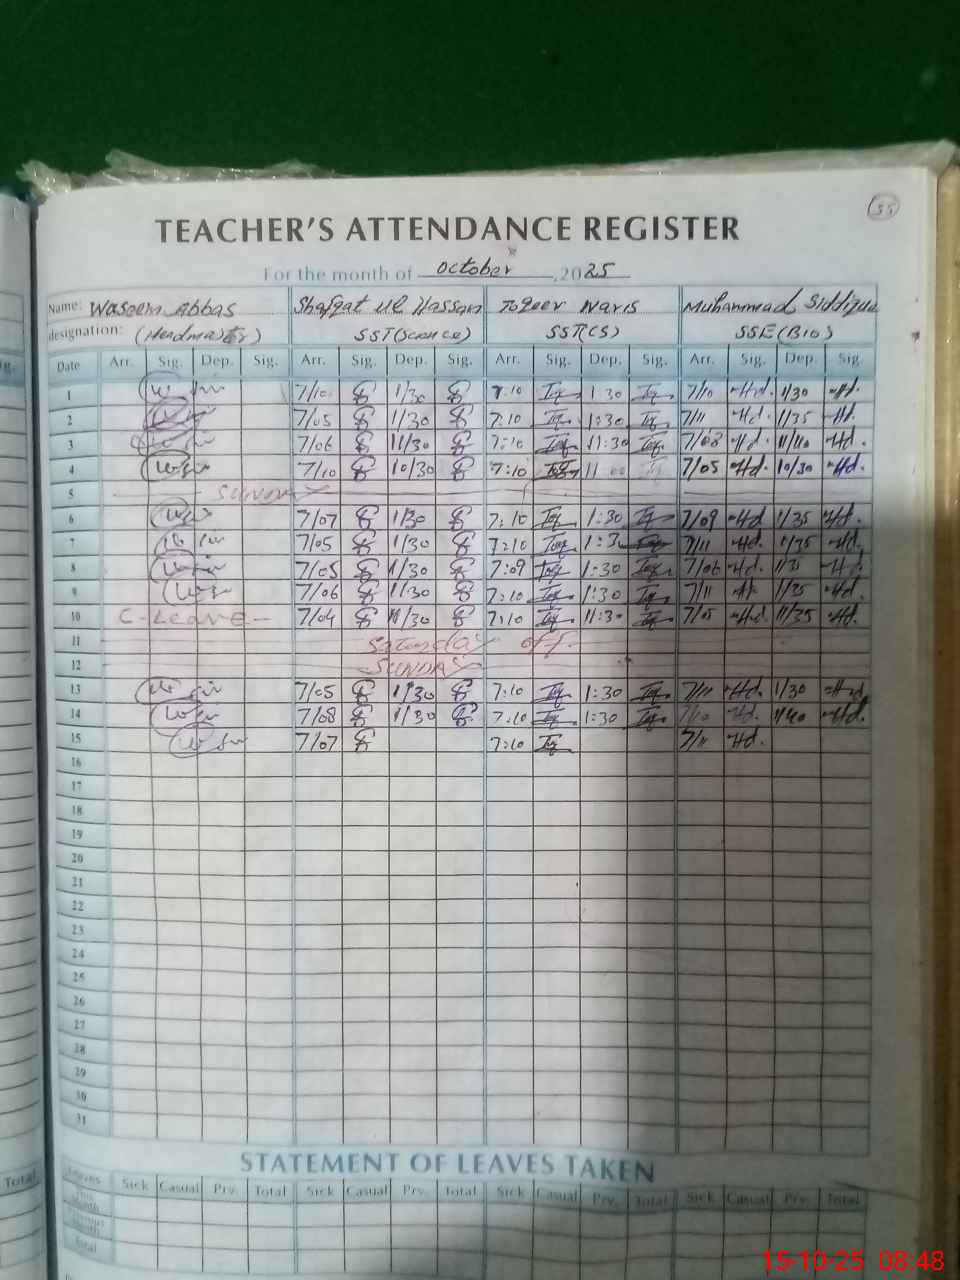 55
TEACHER'S ATTENDANCE REGISTER
For the month of October, 2025
Name: Waseem Abbas Shafqat Ul Hassan Toqeer Waris Muhammad Siddique
designation: (Headmaster) SST(Science) SST(CS) SSE(Bio)
Date Arr. Sig. Dep. Sig. Arr. Sig. Dep. Sig. Arr. Sig. Dep. Sig. Arr. Sig. Dep. Sig.
1 7/10 1/30 7:10 1:30 7/10 Hd. 1/30 Hd.
2 7/05 1/30 7:10 1:30 7/11 Hd. 1/35 Hd.
3 7/06 11/30 7:10 11:30 7/08 Hd. 11/40 Hd.
4 7/10 10/30 7:10 7/05 Hd. 10/30 Hd.
5 SUNDAY
6 7/07 1/30 7:10 1:30 7/09 Hd. 1/35 Hd.
7 7/05 1/30 7:10 1:30 7/11 Hd. 1/35 Hd.
8 7/05 1/30 7:09 1:30 7/06 Hd. 1/35 Hd.
9 7/06 1:30 7:10 1:30 7/11 Hd. 1/35 Hd.
10 C-Leave- 7/04 11/30 7:10 11:30 7/05 Hd. 11/35 Hd.
11 Saturday off.
12 SUNDAY
13 7/05 1/30 7:10 1:30 7/11 Hd. 1/30 Hd.
14 7/08 1/30 7:10 1:30 7/10 Hd. 1/40 Hd.
15 7/07 7:10 7/11 Hd.
16
17
18
19
20
21
22
23
24
25
26
27
28
29
30
31
STATEMENT OF LEAVES TAKEN
Leaves Sick Casual Prv. Total Sick Casual Prv. Total Sick Casual Prv. Total Sick Casual Prv. Total
This Month
Previous Month
Total
Total
15-10-25 08:48